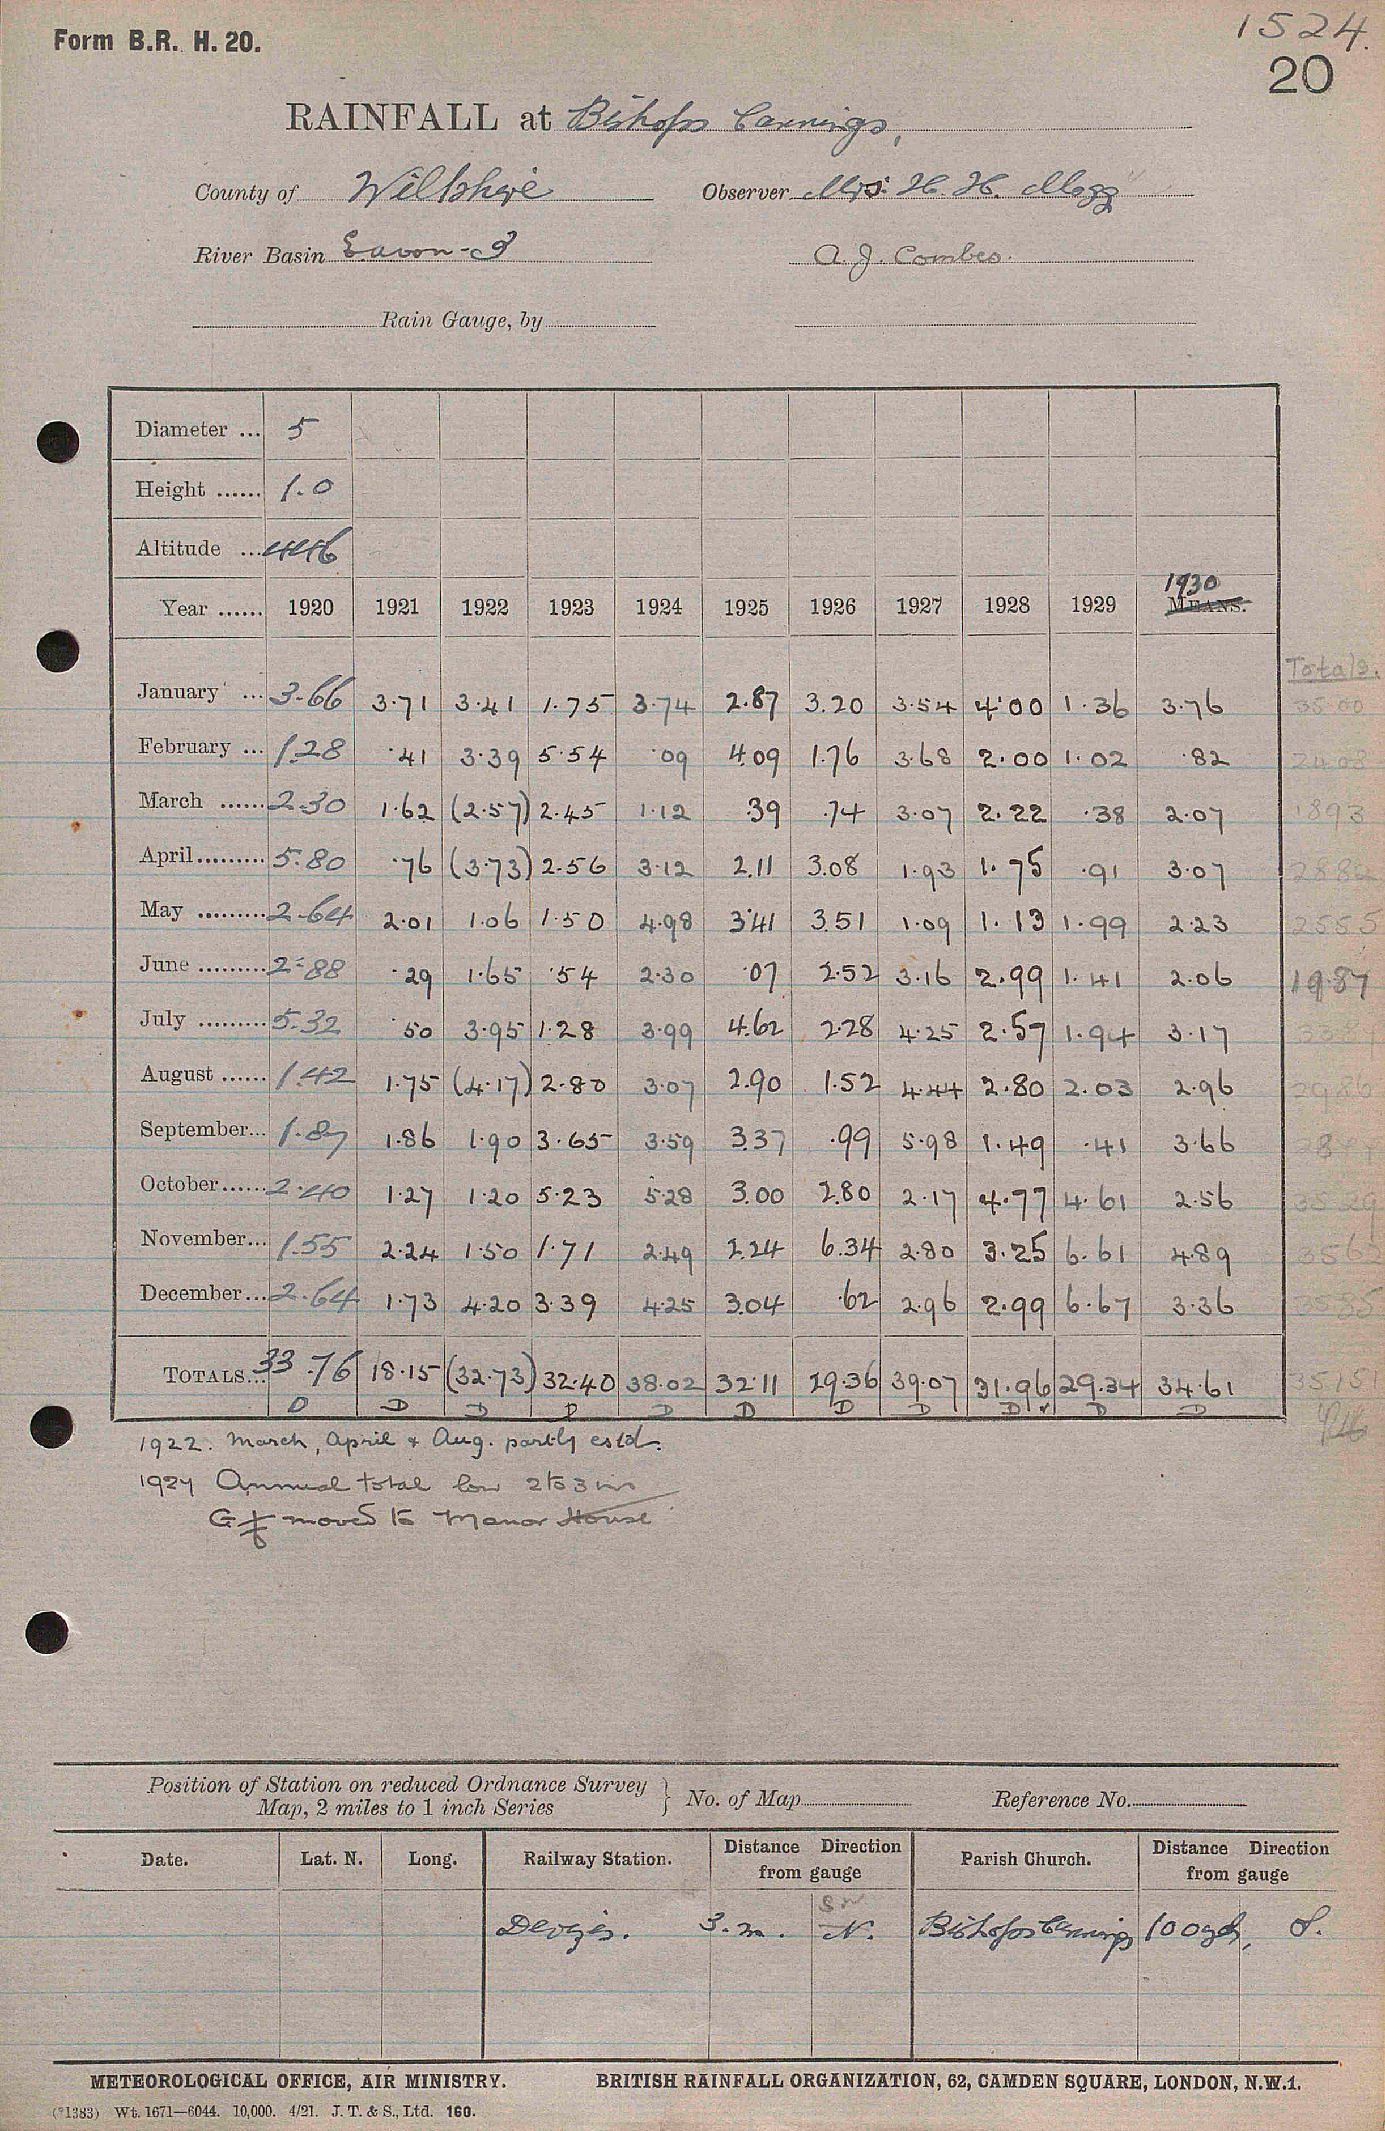 Form B.R. H. 20.
1524.
20
RAINFALL at Bishops Cannings,
County of Wiltshire Observer Mrs. H. H. Mogg
River Basin E. avon - 3 A. J. Combes.
Rain Gauge, by
Diameter ... 5
Height ...... 1.0
Altitude ... 446
Year ...... 1920 1921 1922 1923 1924 1925 1926 1927 1928 1929 1930 MEANS.
Totals.
January ... 3.66 3.71 3.41 1.75 3.74 2.87 3.20 3.54 4.00 1.36 3.76 3500
February ... 1.28 .41 3.39 5.54 .09 4.09 1.76 3.68 2.00 1.02 .82 2408
March ...... 2.30 1.62 (2.57) 2.45 1.12 .39 .74 3.07 2.22 .38 2.07 1893
April......... 5.80 .76 (3.73) 2.56 3.12 2.11 3.08 1.93 1.75 .91 3.07 2882
May ......... 2.64 2.01 1.06 1.50 4.98 3.41 3.51 1.09 1.13 1.99 2.23 2555
June ......... 2.88 .29 1.65 .54 2.30 .07 2.52 3.16 2.99 1.41 2.06 19.87
July ......... 5.32 .50 3.95 1.28 3.99 4.62 2.28 4.25 2.57 1.94 3.17
August ...... 1.42 1.75 (4.17) 2.80 3.07 2.90 1.52 4.44 2.80 2.03 2.96 2986
September... 1.87 1.86 1.90 3.65 3.59 3.37 .99 5.98 1.49 .41 3.66
October...... 2.40 1.27 1.20 5.23 5.28 3.00 2.80 2.17 4.77 4.61 2.56 3529
November... 1.55 2.24 1.50 1.71 2.49 2.24 6.34 2.80 3.25 6.61 4.89 3562
December... 2.64 1.73 4.20 3.39 4.25 3.04 .62 2.96 2.99 6.67 3.36 3585
TOTALS... 33.76 18.15 (32.73) 32.40 38.02 32.11 29.36 39.07 31.96 29.34 34.61 35151
D D D D D D D D D ✓ D D
1922. March, April & Aug. partly estd.
1924 Annual total low 2 to 3 ins
moved to Manor House
Position of Station on reduced Ordnance Survey Map, 2 miles to 1 inch Series } No. of Map Reference No.
Date. Lat. N. Long. Railway Station. Distance Direction from gauge Parish Church. Distance Direction from gauge
SW
Devizes. 3. m. N. Bishops Cannings 100 yds, S.
METEOROLOGICAL OFFICE, AIR MINISTRY. BRITISH RAINFALL ORGANIZATION, 62, CAMDEN SQUARE, LONDON, N.W.1.
(*1383) Wt. 1671—6044. 10,000. 4/21. J. T. & S., Ltd. 160.